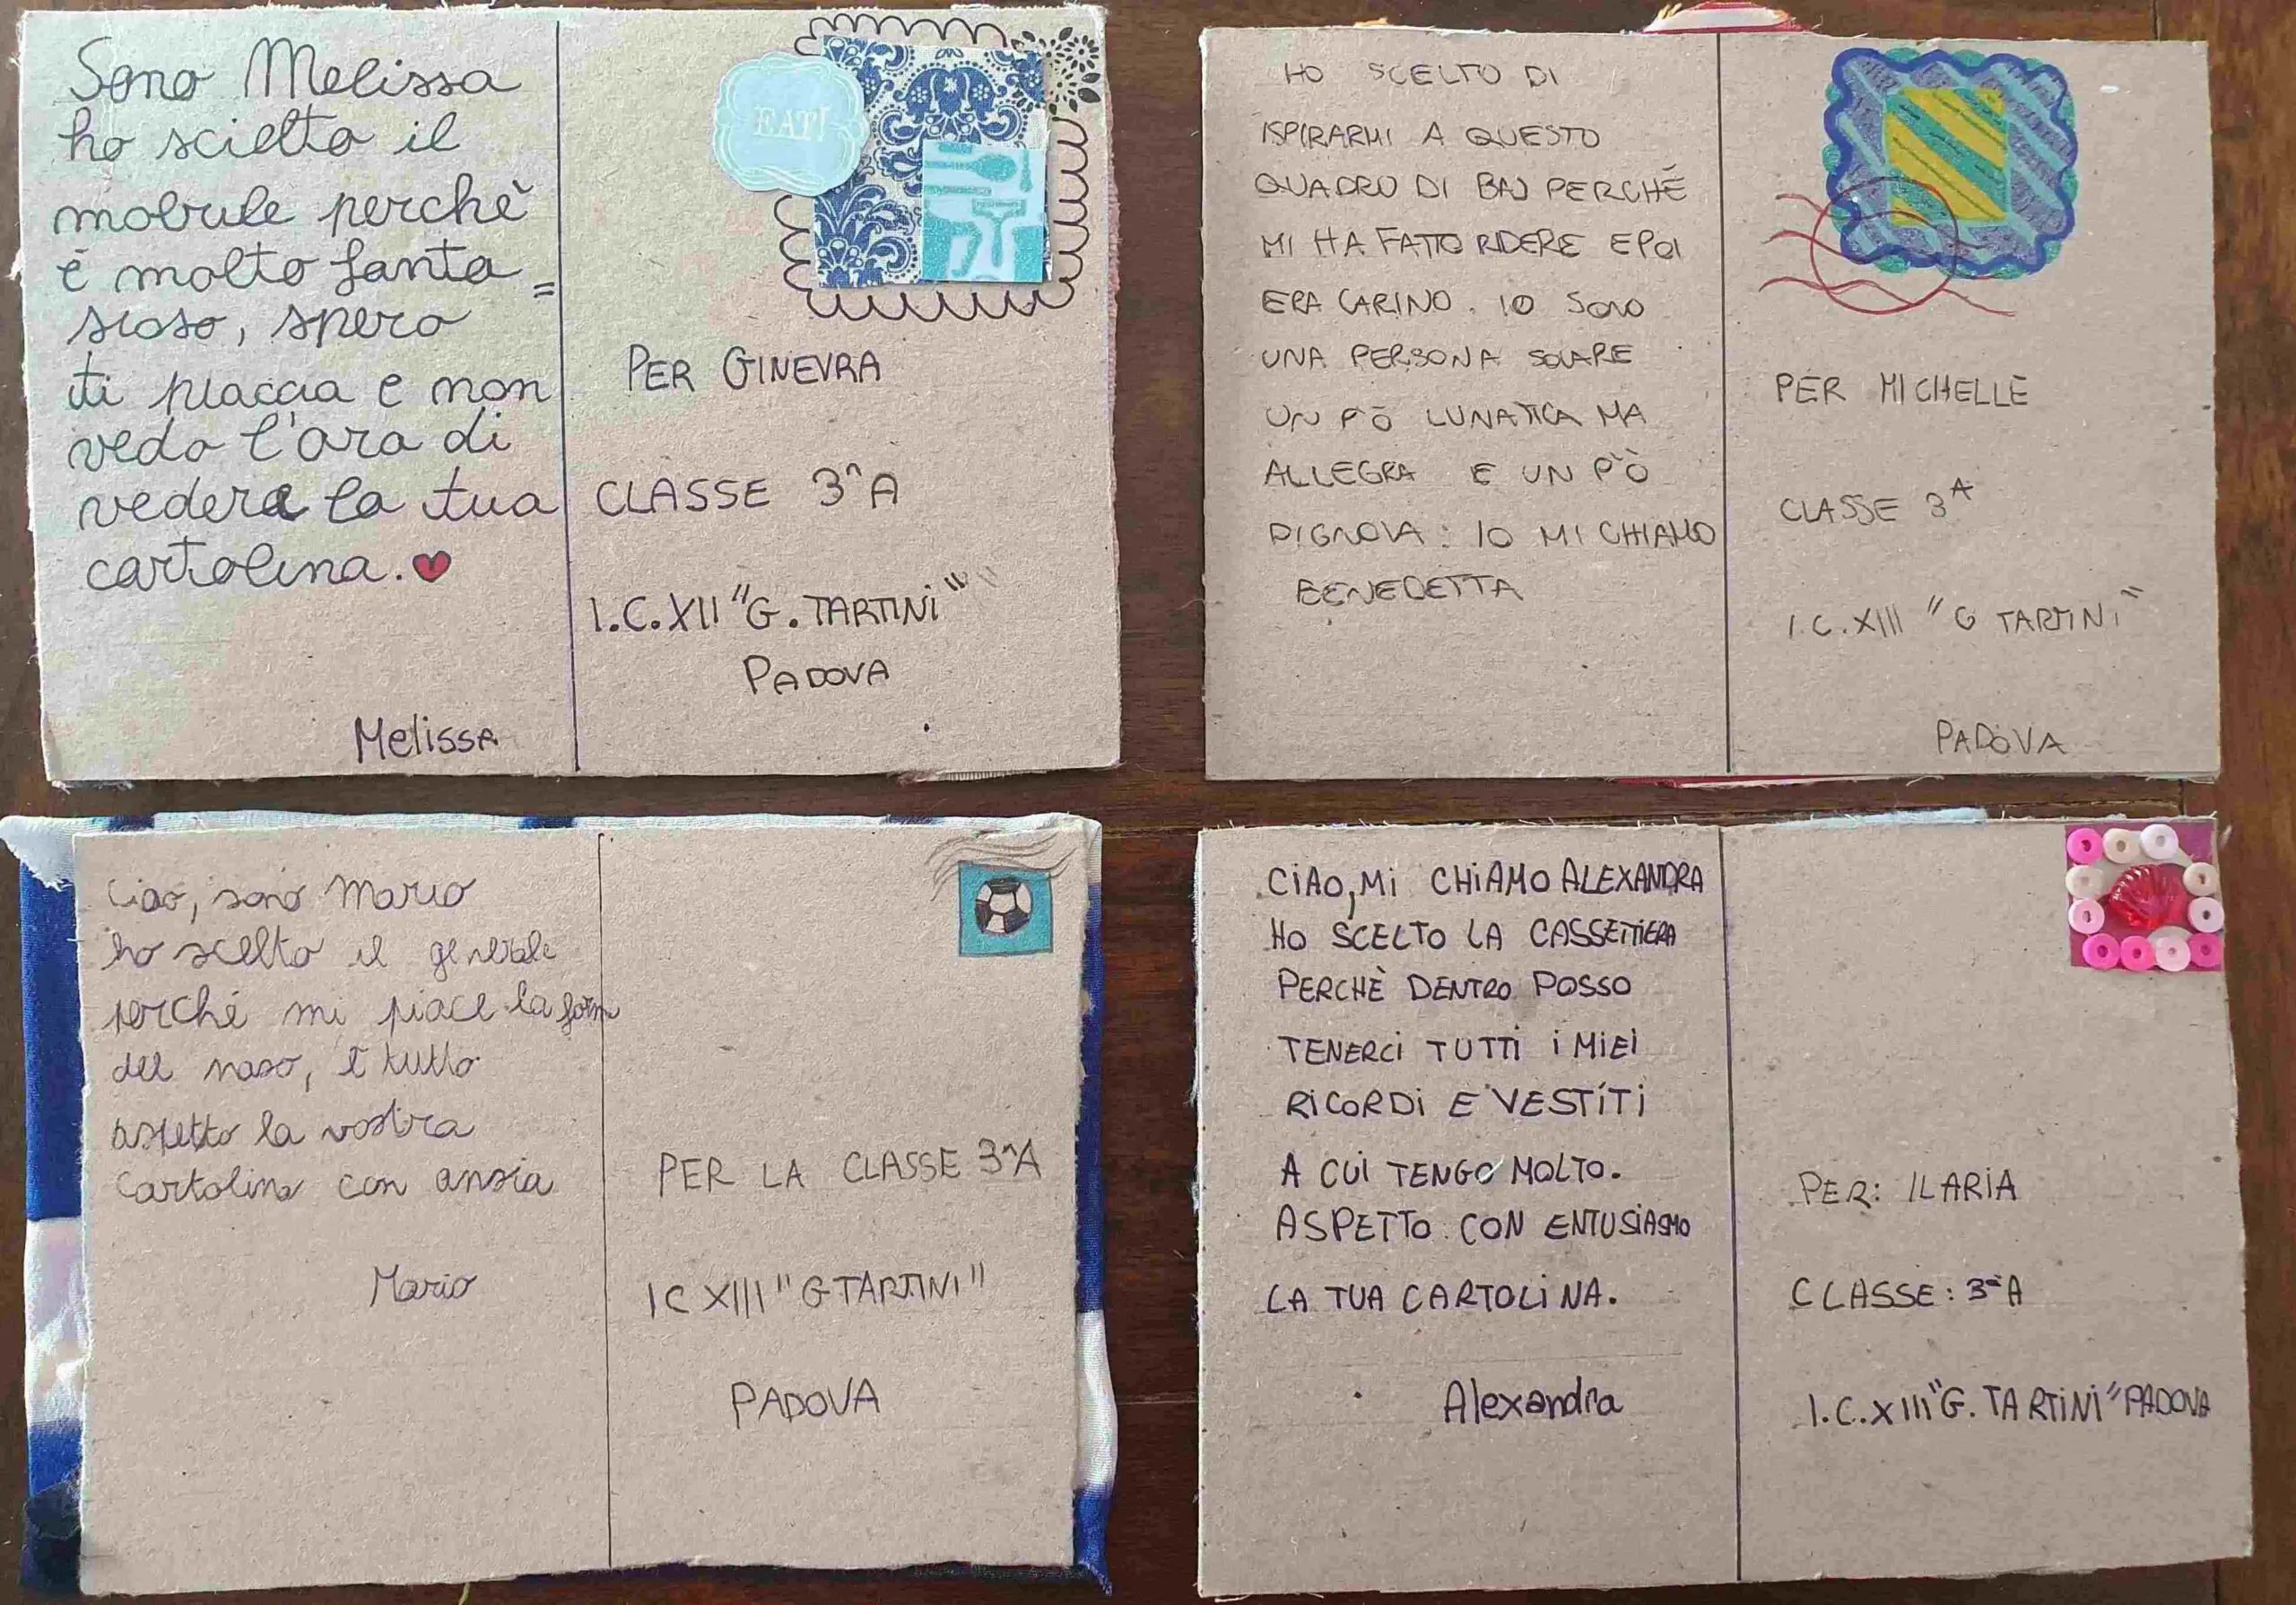 Sono Melissa
ho scielto il
mobule perchè
è molto fanta=
sioso, spero
ti piaccia e non
vedo l'ora di
vedere la tua
cartolina.
Melissa
EAT!
PER GINEVRA
CLASSE 3^A
I.C.XII "G. TARTINI"
PADOVA
HO SCELTO DI
ISPIRARMI A QUESTO
QUADRO DI BAJ PERCHÉ
MI HA FATTO RIDERE E POI
ERA CARINO. IO SONO
UNA PERSONA SOLARE
UN PÒ LUNATICA MA
ALLEGRA E UN PÒ
PIGNOVA: IO MI CHIAMO
BENEDETTA
PER MICHELLE
CLASSE 3^A
I.C.XIII "G TARTINI"
PADOVA
Ciao, sono Mario
ho scelto il generale
perché mi piace la form
del naso, è tutto
aspetto la vostra
cartolina con ansia
Mario
PER LA CLASSE 3^A
IC XIII "G TARTINI"
PADOVA
CIAO, MI CHIAMO ALEXANDRA
HO SCELTO LA CASSETTIERA
PERCHÈ DENTRO POSSO
TENERCI TUTTI I MIEI
RICORDI E VESTITI
A CUI TENGO MOLTO.
ASPETTO CON ENTUSIASMO
LA TUA CARTOLINA.
Alexandra
PER: ILARIA
CLASSE: 3^A
I.C.XIII "G. TARTINI" PADOVA